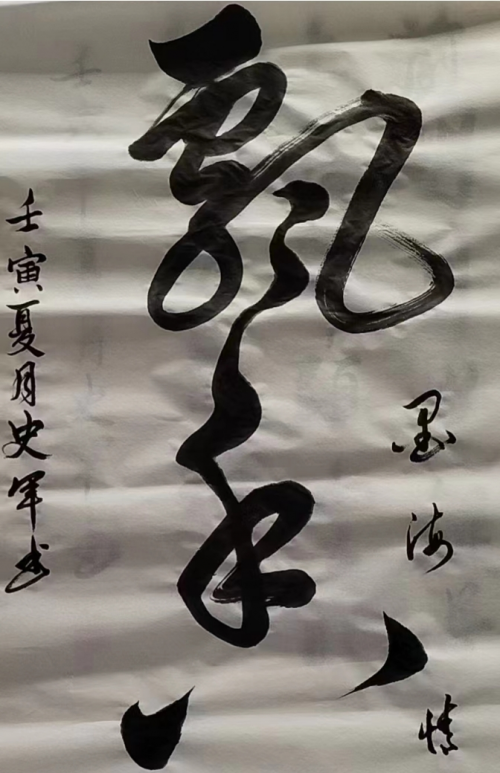 飘
墨海情
壬寅夏月史军书